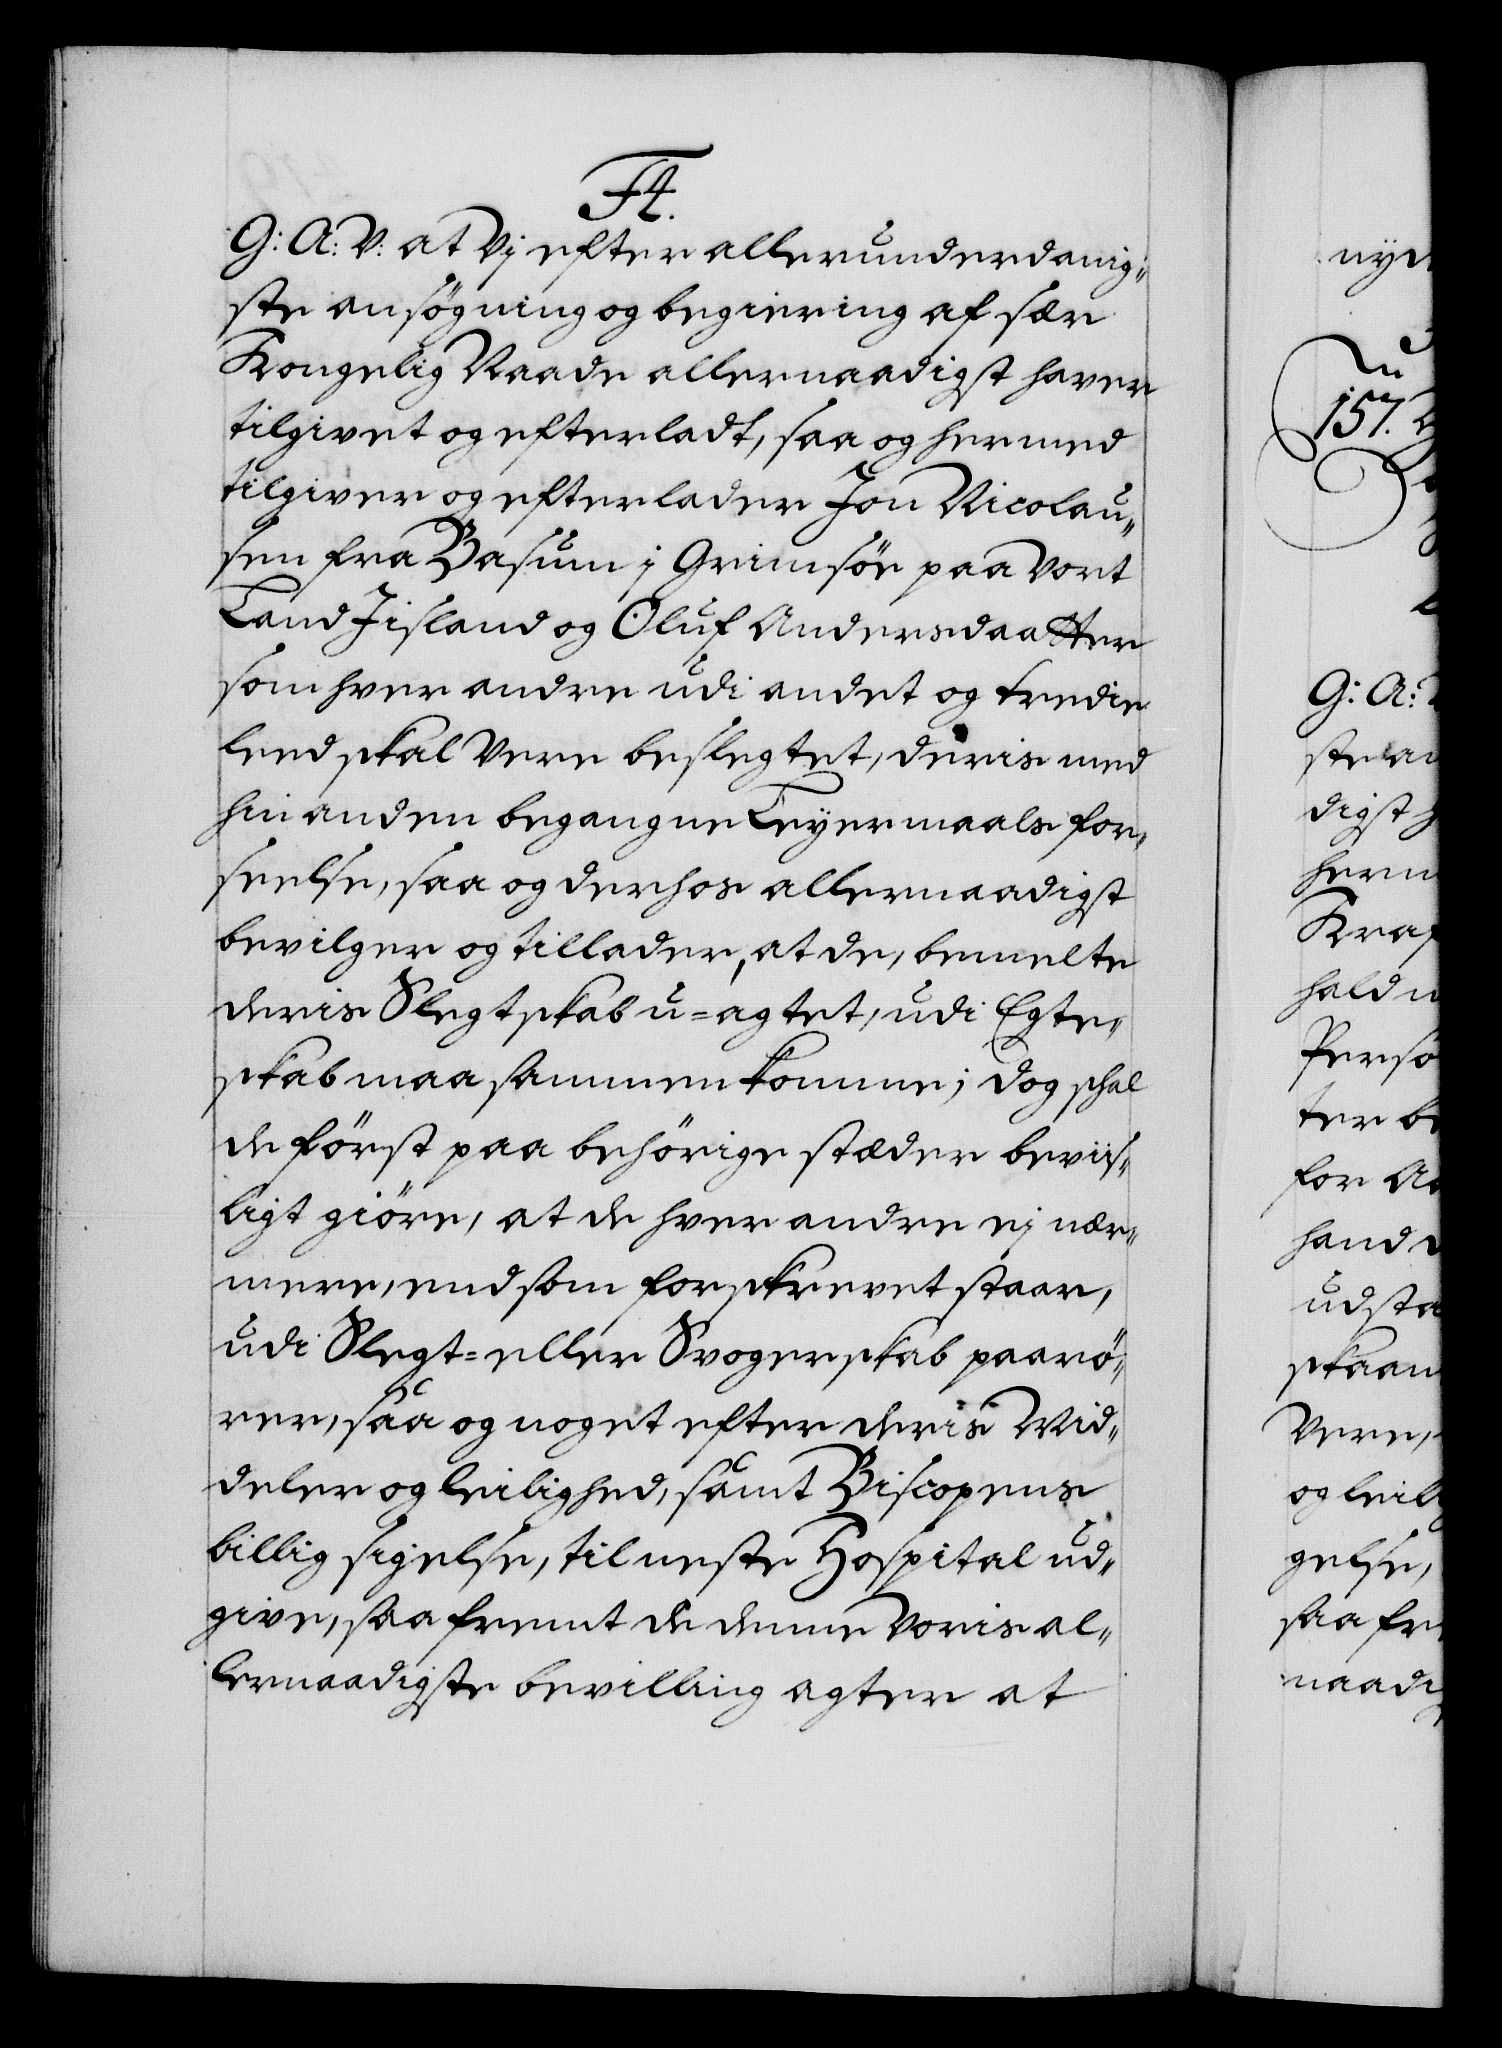 F4.
G: A: V: at Vj efter allerunderdanig-
ste ansøgning og begiering af sær
Kongelig Naade allernaadigst haver
tilgivet og efterladt, saa og hermed
tilgiver og efterlader Jon Nicolau-
sen fra Basum j Grimsöe paa vort
Land Jisland og Oluf Andersdaatter
som hver andre udi andet og tredie
leed skal Vere beslegtet, deris med
hin anden begangne Leyermaals for-
seelse, saa og derhos allernaadigst
bevilger og tillader, at de, bemelte
deris Slegtskab u=agtet, udi Egte-
skab maa sammenkomme; dog schal
de först paa behörige stæder beviis-
ligt giöre, at de hver andre ej nær-
mere, end som forskrevet staar,
udi Slegt= eller Svogerskab paarö-
rer, saa og noget efter deris Mid-
deler og leilighed, samt Biscopens
billig sigelse, til neste Hospital ud-
give, saa fremt de denne Voris al-
lernaadigste bevilling agter at
nyde
157.
G: A:
ste an
digst h
herm
hald
Perso
ter be
for
hand
udsta
skaan
Vere,
og leili
gelse,
saa fre
naadig